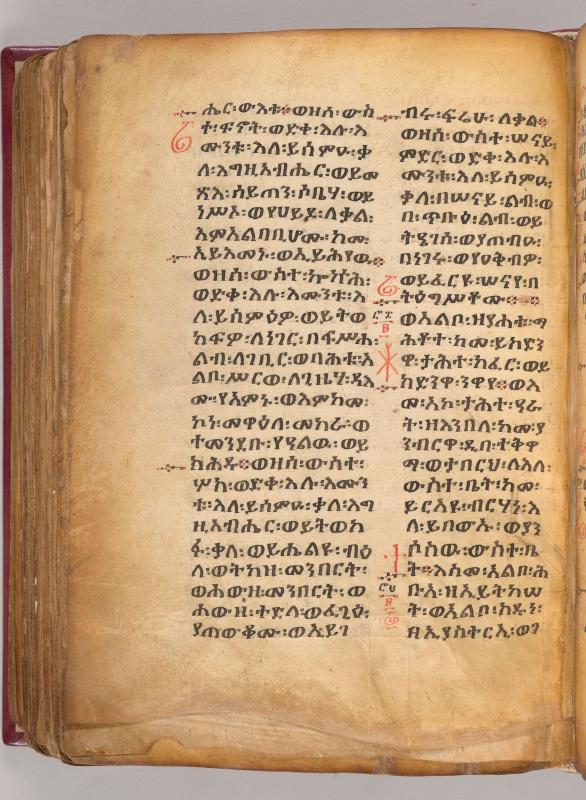 ሔር፡ውእቱ፨ወዘሰ፡ውስ
ተ፡ፍኖት፡ወድቀ፡እሉ፡እ
ሙንቱ፡እለ፡ይሰምዑ፡ቃ
ለ፡እግዚአብሔር፡ወይመ
ጽእ፡ሰይጣን፡ሶቤሃ፡ወይ
ነሥኦ፡ወየሀይዶ፡ለቃል፡
እምእልባቢሆሙ፡ከመ፡
ኢይእመኑ፡ወኢይሕየዉ፨
ወዘሰ፡ውስተ፡ኰኵሕ፡
ወድቀ፡እሉ፡እሙንቱ፡እ
ለ፡ይሰምዕዎ፡ወይትወ
ከፍዎ፡ለነገር፡በፍሥሐ፡
ልብ፡ለገቢር፡ወባሕቱ፡አ
ልቦ፡ሥርወ፡ለጊዜሃ፡ዳእ
ሙ፡የአምኑ፡ወእምከመ፡
ኮነ፡መዋዕለ፡መከራ፡ወ
ተመንደቡ፡የዓልዉ፡ወይ
ክሕዱ፨ወዘሰ፡ውስተ፡
ሦክ፡ወድቀ፡እሉ፡እሙን
ቱ፡እለ፡ይሰምዑ፡ቃለ፡እግ
ዚአብሔር፡ወይትወከ
ፉ፡ቃለ፡ወይሔልዩ፡ብዕ
ለ፡ወትካዘ፡መንበርት፡
ወሕውዘ፡መንበርት፡ወ
ሐውዘ፡ተድላ፡ወፈጊዕ፡
ያጠውቆሙ፡ወኢይገ
ብሩ፡ፍሬሁ፡ለቃል፨
ወዘሰ፡ውስተ፡ሠናይ፡
ምድር፡ወድቀ፡እሉ፡እ
ሙንቱ፡እለ፡ይሰምዑ፡
ቃለ፡በሠናይ፡ልብ፡ወ
በ፡ጥቡዕ፡ልብ፡ወይ
ትዔገሥ፡ወያጠብዑ፡
በነገሩ፡ወየዐቅብዎ፡
ወይፈርዩ፡ሠናየ፡በ
ትዕግሥቶሙ፨
ወአልቦ፡ዘያሐቱ፡ማ
ሕቶተ፡ከመ፡ይክድን
ዋ፡ታሕተ፡ከፈር፡ወይ
ከድንዋ፡ንዋየ፨ወአ
መ፡አኮ፡ታሕተ፡ዓራ
ት፡ዘአንበለ፡ከመ፡ያ
ንብርዋ፡ዲበ፡ተቅዋ
ማ፡ወተበርህ፡ለእለ፡
ውስተ፡ቤት፡ከመ፡
ይርአዩ፡ብርሃነ፡እ
ለ፡ይበውኡ፡ወያን
ሶስዉ፡ውስተ፡ቤ
ት፨እስመ፡አልቦ፡ኅ
ቡእ፡ዘኢይትከሠ
ት፡ወአልቦ፡ክዱን፡
ዘኢያስተርኢ፡ወገ